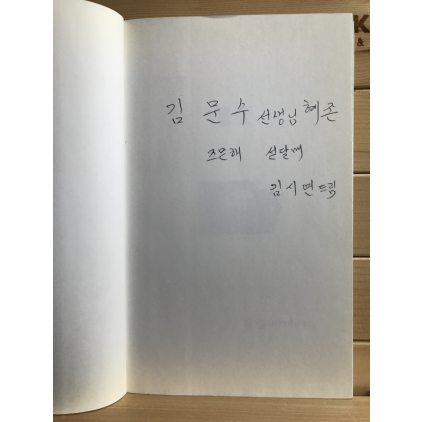 김 문 수 선생님 혜존
조은해 섣달에
김시면드림
K
&